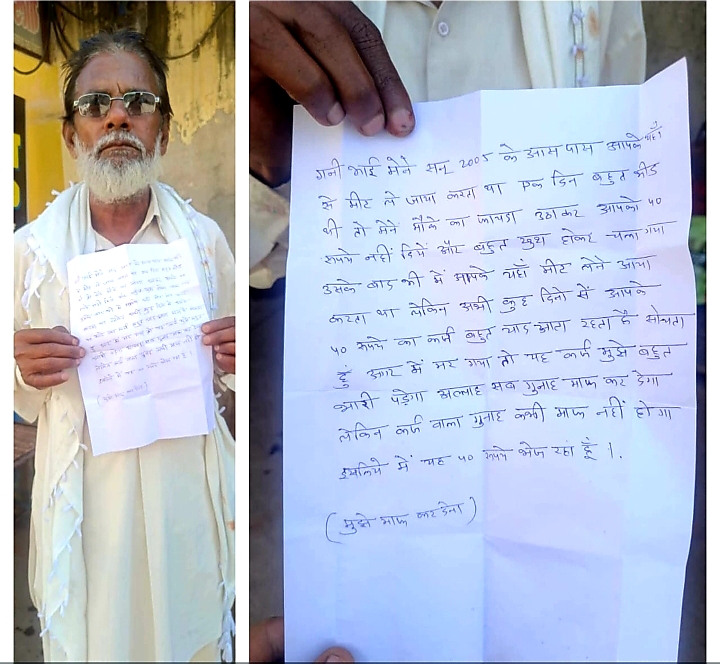 गनी भाई मेने सन् 2005 के आस पास आपके यहाँ
से मीट ले जाया करता था एक दिन बहुत भीड
थी तो मेने मौके का फायदा उठा कर आपको ५०
रूपये नहीं दिये और बहुत खुश होकर चला गया
उसके बाद भी में आपके यहाँ मीट लेने आया
करता था लेकिन अभी कुछ दिनो से आपके
५० रूपये का कर्ज बहुत याद आता रहता है सोचता
हुँ अगर में मर गया तो यह कर्ज मुझे बहुत
भारी पड़ेगा अल्लाह सब गुनाह माफ कर देगा
लेकिन कर्ज वाला गुनाह कभी माफ नहीं होगा
इसलिये में यह ५० रूपये भेज रहा हूँ ।.
(मुझे माफ कर देना)